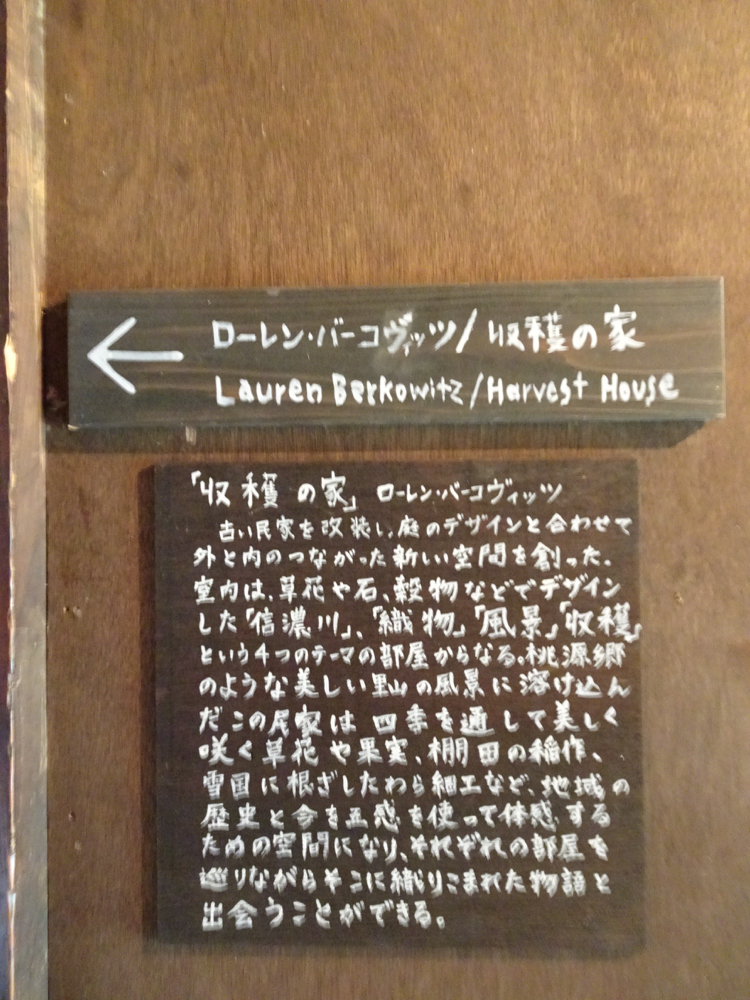 ローレン・バーコヴィッツ/収穫の家
Lauren Berkowitz/Harvest House
「収穫の家」 ローレン・バーコヴィッツ
古い民家を改装し、庭のデザインと合わせて
外と内のつながった新しい空間を創った。
室内は、草花や石、穀物などでデザイン
した「信濃川」、「織物」「風景」「収穫」
という4つのテーマの部屋からなる。桃源郷
のような美しい里山の風景に溶け込ん
だこの民家は四季を通して美しく
咲く草花や果実、棚田の稲作、
雪国に根ざしたわら細工など、地域の
歴史と今を五感を使って体感する
ための空間になり、それぞれの部屋を
巡りながらそこに織りこまれた物語と
出会うことができる。